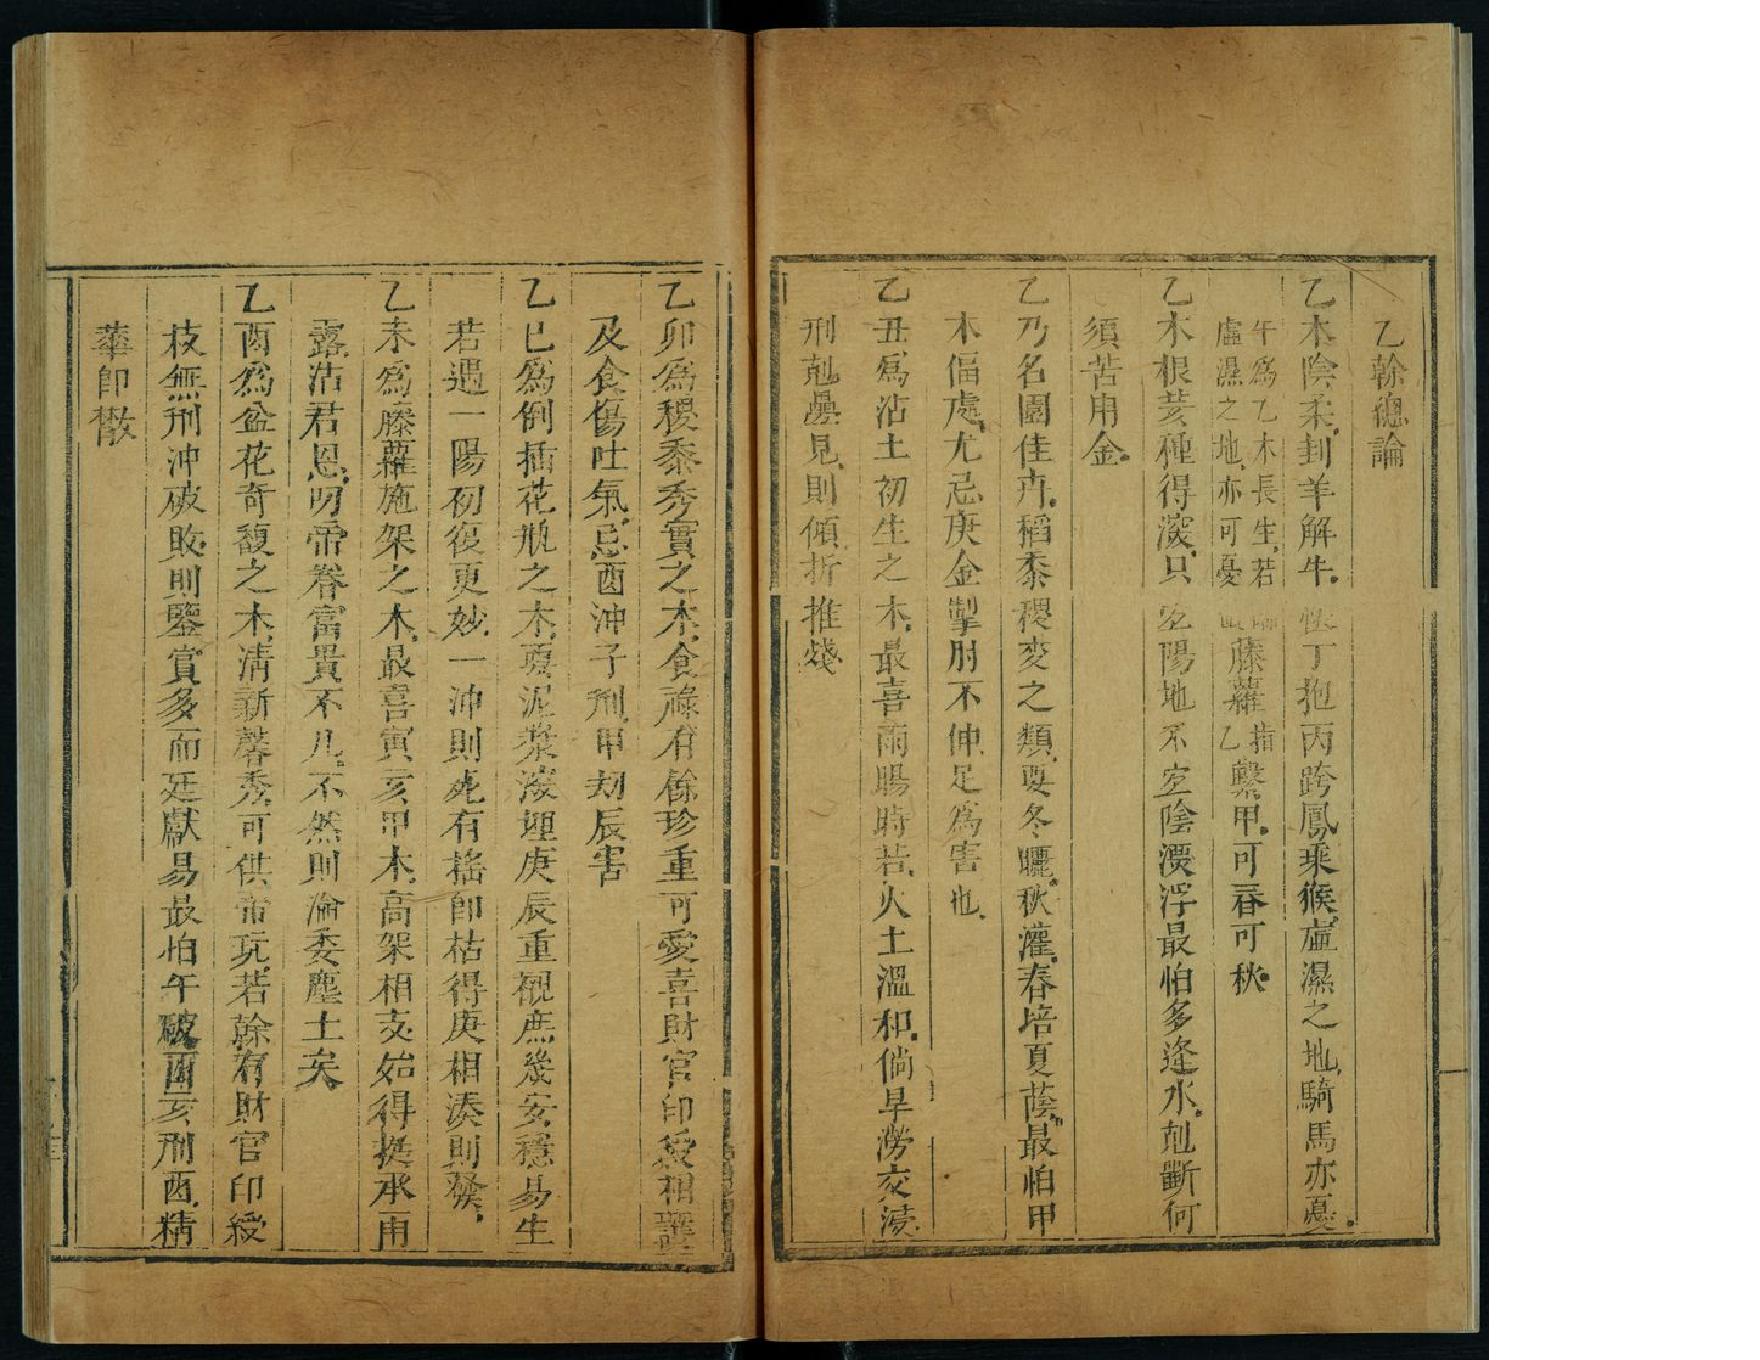 乙榦總論
乙木陰柔刲羊解牛懷丁抱丙跨鳳乘猴虛濕之地騎馬亦憂
午爲乙木長生若
虛濕之地亦可憂
藤蘿
指
乙
繫甲可春可秋
乙木根荄種得深只宐陽地不宐陰漂浮最怕多逢水剋斷何
須苦用金
乙乃名園佳卉稻黍稷麥之類要冬曬秋灌春培夏蔭最怕甲
木偪處尤忌庚金掣肘不伸足爲害也
乙丑爲沾土初生之木最喜雨暘時若火土溫和倘旱澇交湊
刑剋疊見則傾折推殘
乙卯爲稷黍秀實之木食祿有餘珍重可愛喜財官印綬相
及食傷吐氣忌酉沖子刑甲刼辰害
乙巳爲倒插花瓶之木須泥漿深埋庚辰重覩庶幾安穩易生
若遇一陽初復更妙一沖則死有搖卽枯得庚相湊則發
乙未爲藤蘿施架之木最喜寅亥甲木高架相支始得挺承雨
露沾君恩叨帝眷富貴不凡不然則淪委塵土矣
乙酉爲盆花奇馥之木清新馨秀可供帝玩若榦有財官印綬
枝無刑沖破敗則鑒賞多而廷獻易最怕午破酉亥刑酉精
華卽散